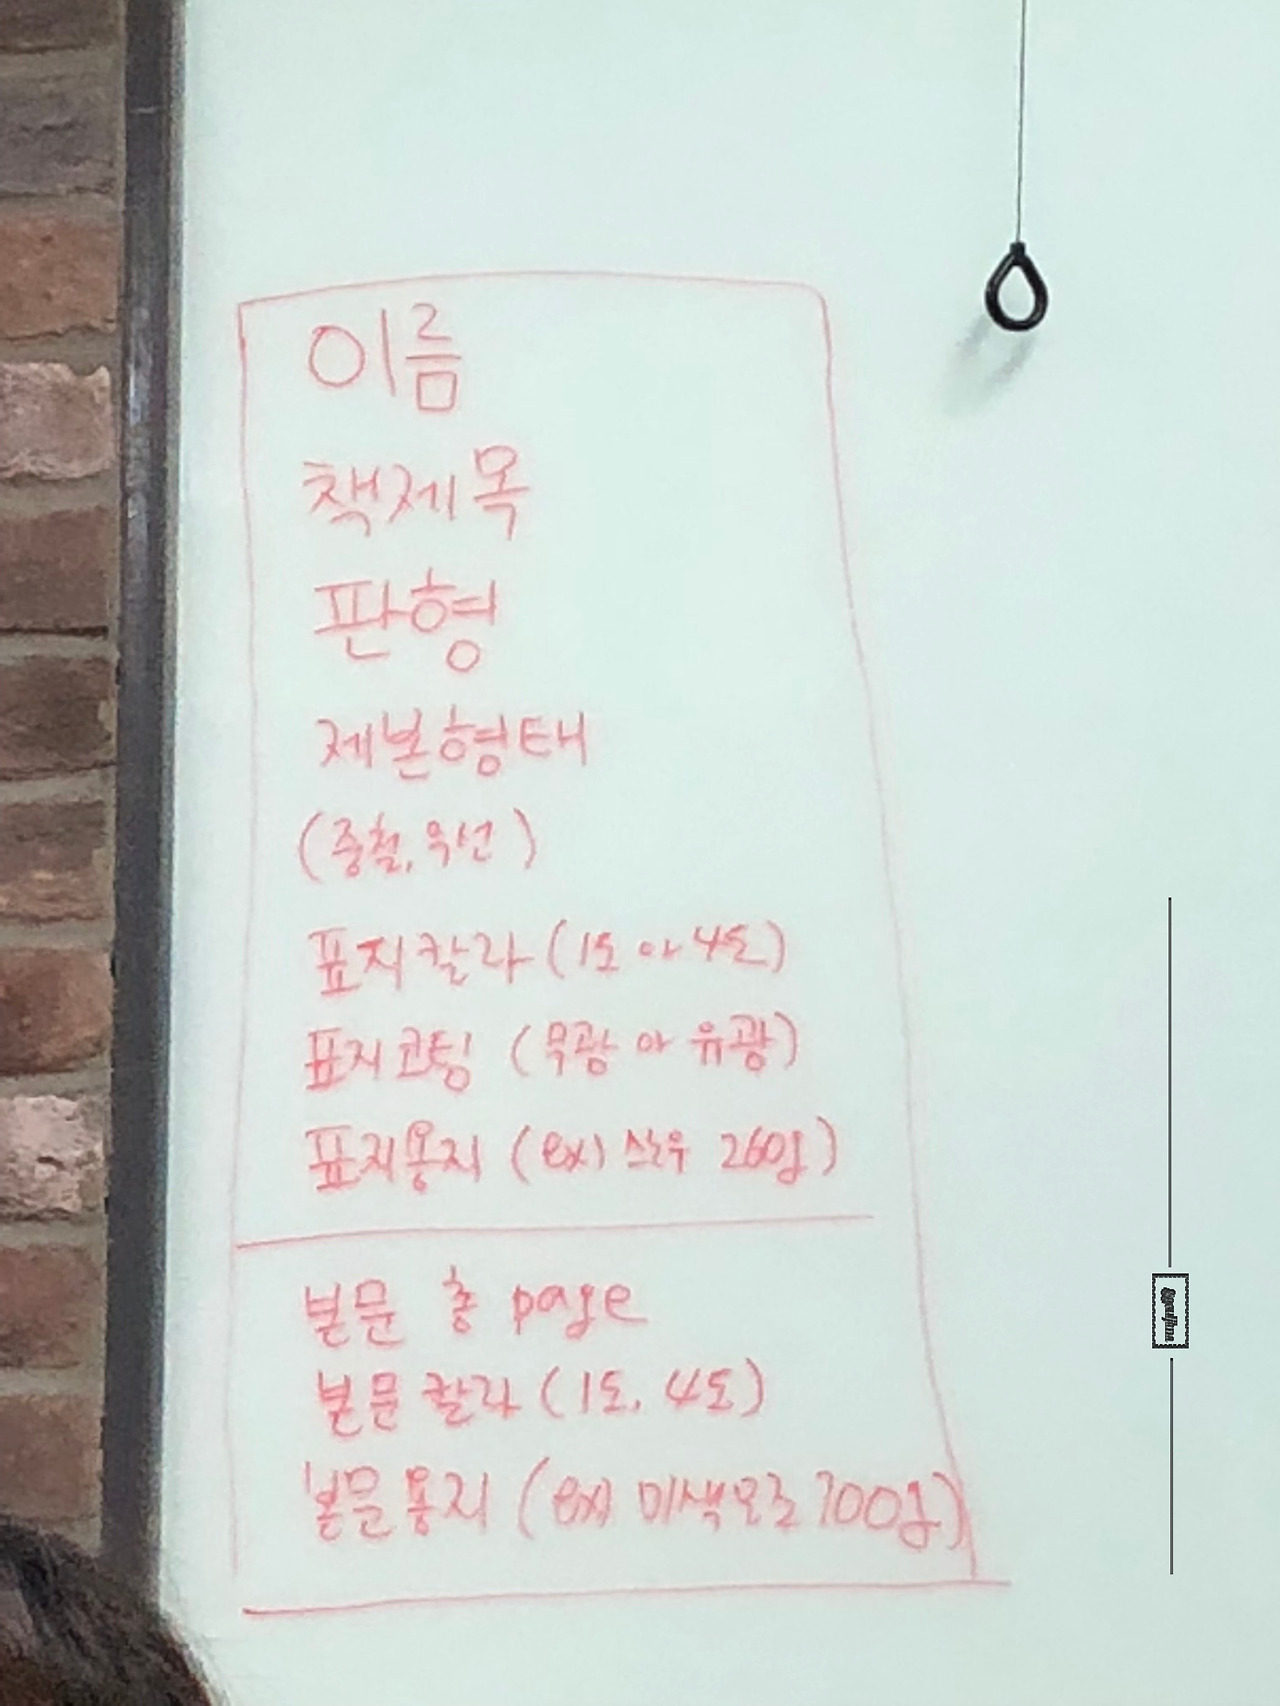 이름
책제목
판형
제본형태
(중철, 우선)
표지칼라 (1도 or 4도)
표지코팅 (무광 or 유광)
표지용지 (ex) 스노우 260g)
본문 총 page
본문칼라 (1도, 4도)
본문용지 (ex) 미색모조 100g)